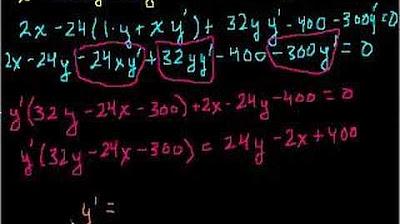 2x-24(1·y+xy')+32yy'-400-300y'=0
2x-24y-24xy'+32yy'-400-300y'=0
y'(32y-24x-300)+2x-24y-400=0
y'(32y-24x-300)=24y-2x+400
y'=